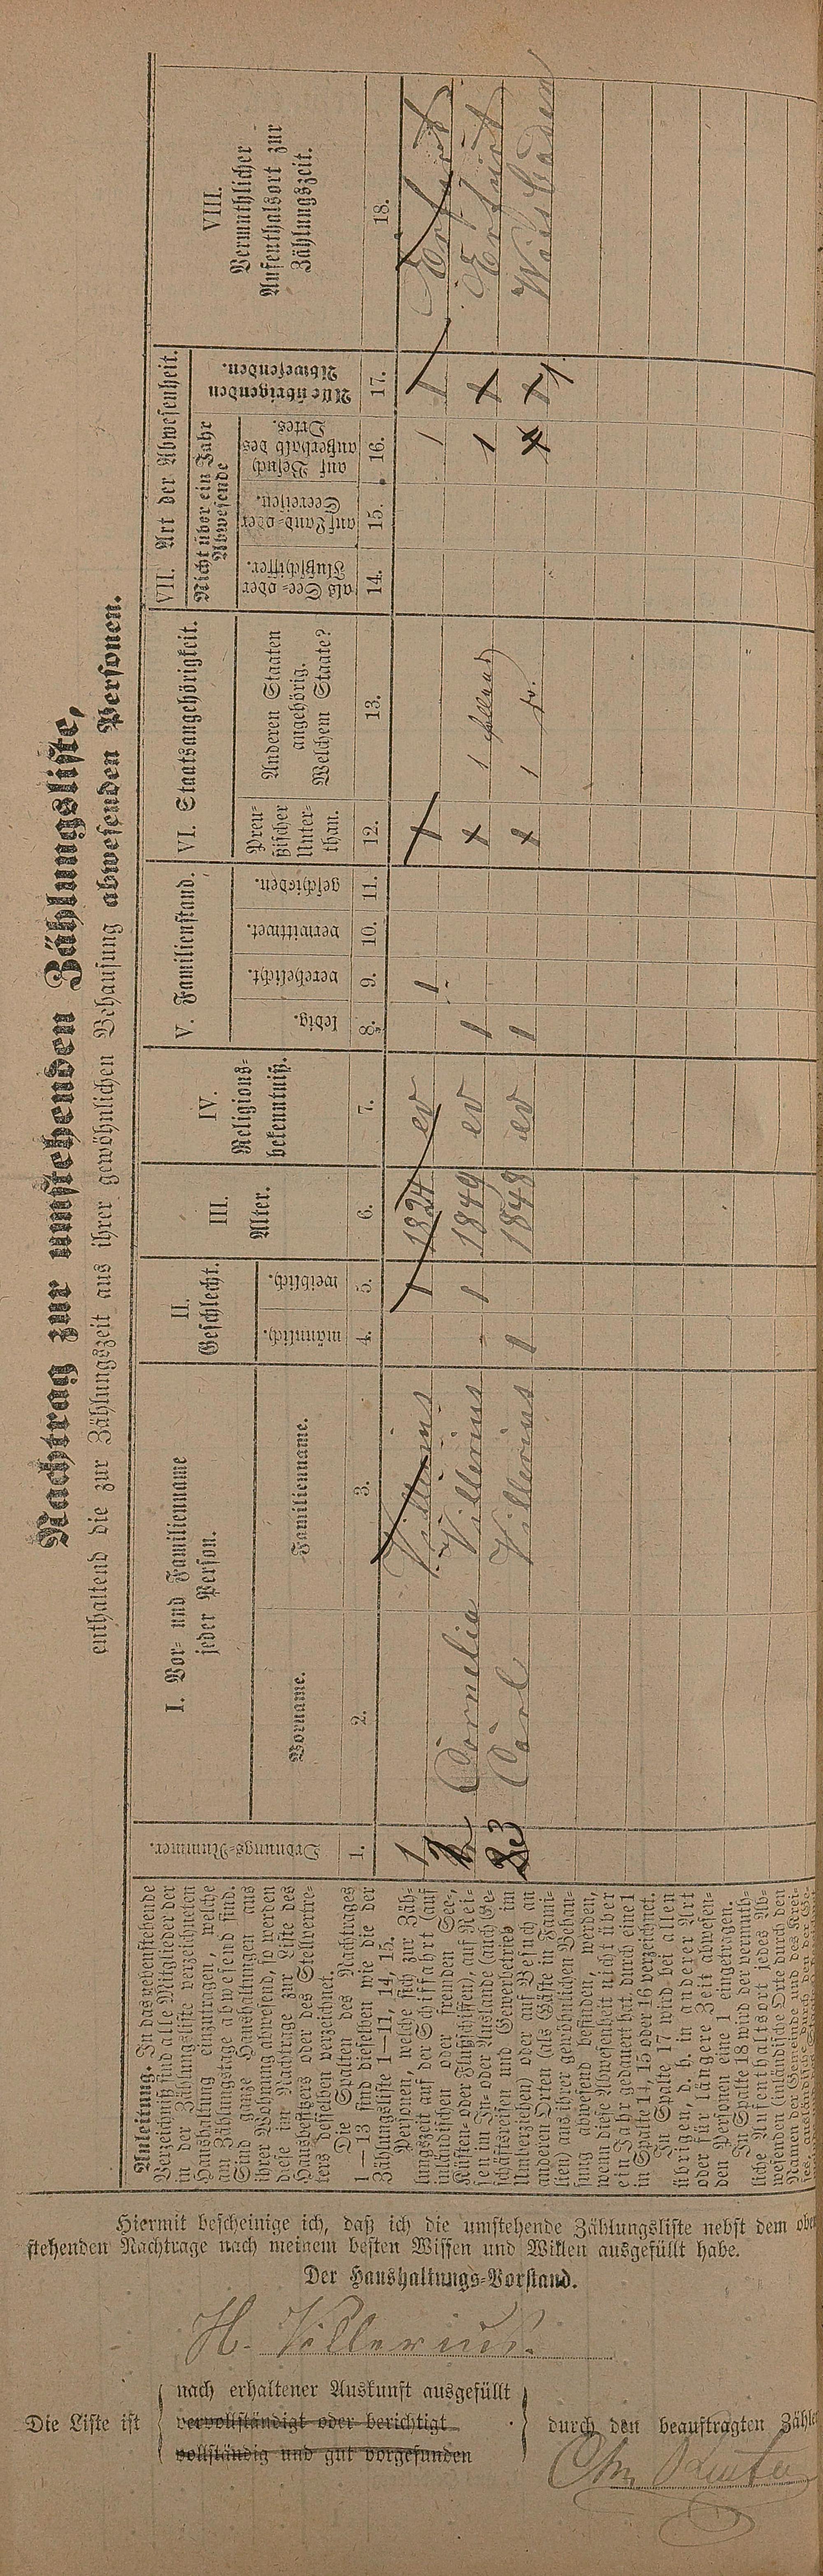 Nachtrag zur umstehenden Zählungsliste,
enthaltend die zur Zählungszeit aus ihrer gewöhnlichen Behausung abwesenden Personen.
Anleitung. In das nebenstehende
Verzeichniß sind alle Mitglieder der
in der Zählungsliste verzeichneten
Haushaltung einzutragen, welche
am Zählungstage abwesend sind.
Sind ganze Haushaltungen aus
ihrer Wohnung abwesend, so werden
diese im Nachtrage zur Liste des
Hausbesitzers oder des Stellvertre-
ters desselben verzeichnet.
Die Spalten des Nachtrages
1—13 sind dieselben wie die der
Zählungsliste 1—11, 14, 15.
Personen, welche sich zur Zäh-
lungszeit auf der Schifffahrt (auf
inländischen oder fremden See-,
Küsten- oder Flußschiffen), auf Rei-
sen im In- oder Auslande (auch Ge-
schäftsreisen und Gewerbetrieb im
Umherziehen) oder auf Besuch an
anderen Orten (als Gäste in Fami-
lien) aus ihrer gewöhnlichen Behau-
sung abwesend befinden, werden,
wenn diese Abwesenheit nicht über
ein Jahr gedauert hat, durch eine 1
in Spalte 14, 15 oder 16 verzeichnet.
In Spalte 17 wird bei allen
übrigen, d. h. in anderer Art
oder für längere Zeit abwesen-
den Personen eine 1 eingetragen.
In Spalte 18 wird der vermuth-
liche Aufenthaltsort jedes Ab-
wesenden (inländische Orte durch den
Namen der Gemeinde und des Krei-
ses, ausländische durch den der Ge-
Ordnungs-Nummer.
I. Vor- und Familienname
jeder Person.
Vorname.
Familienname.
II.
Geschlecht.
männlich.
weiblich.
III.
Alter.
IV.
Religions-
bekenntniß.
V. Familienstand.
ledig.
verehelicht.
verwittwet.
geschieden.
VI. Staatsangehörigkeit.
Preu-
ßischer
Unter-
than.
Anderen Staaten
angehörig.
Welchem Staate?
VII. Art der Abwesenheit.
Nicht über ein Jahr
Abwesende
als See- oder
Flußschiffer.
auf Land- oder
Seereisen.
auf Besuch
außerhalb des
Ortes.
Alle übrigenden
Abwesenden.
VIII.
Vermuthlicher
Aufenthalsort zur
Zählungszeit.
1. 2. 3. 4. 5. 6. 7. 8. 9. 10. 11. 12. 13. 14. 15. 16. 17. 18.
1 Villerius 1 1824 ev 1 1 1 1 Erfurt
2 Cornelia Villerius 1 1849 ev 1 1 1 Holland 1 1 Erfurt
3 Carl Villerius 1 1848 ev 1 1 1 do. 1 1 Wiesbaden
Hiermit bescheinige ich, daß ich die umstehende Zählungsliste nebst dem oben
stehenden Nachtrage nach meinem besten Wissen und Willen ausgefüllt habe.
Der Haushaltungs-Vorstand.
H. Villerius.
Die Liste ist
nach erhaltener Auskunft ausgefüllt
vervollständigt oder berichtigt
vollständig und gut vorgefunden
durch den beauftragten Zähler
Chr.